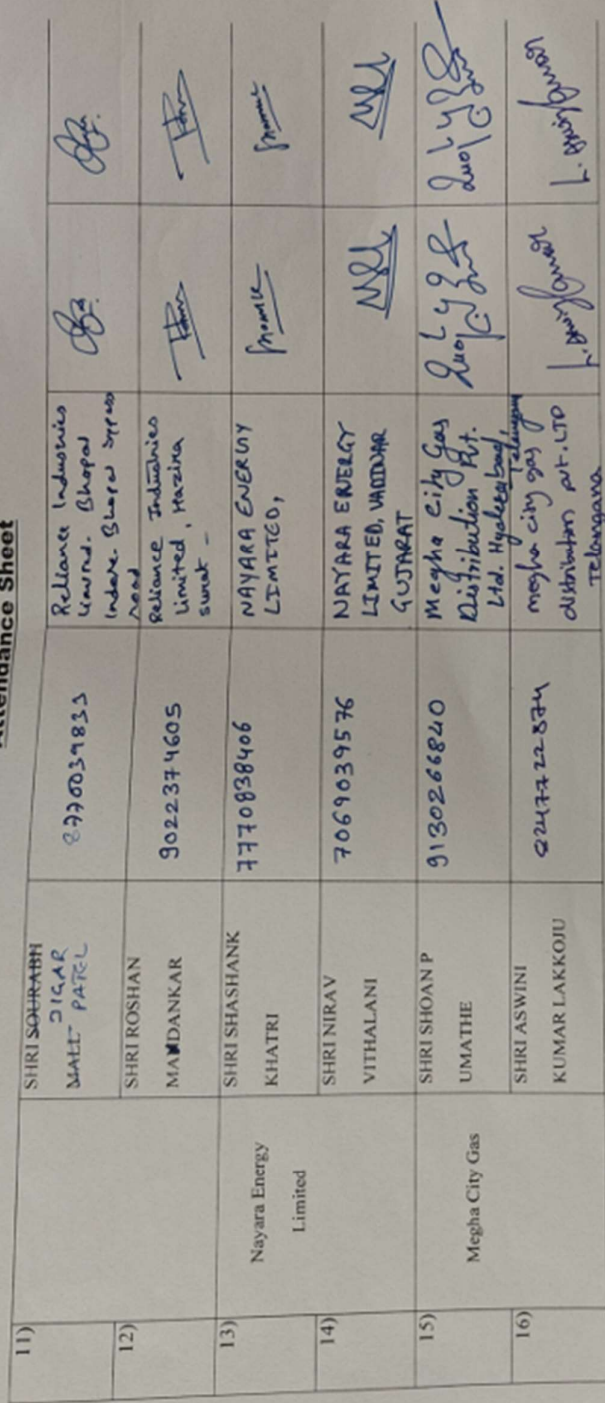 Attendance Sheet
11)
SHRI SOURABH
JIGAR
MALI PATEL
8770039833
Reliance Industries
Bhopal
Indore Bhopal bypass
road
12)
SHRI ROSHAN
MANDANKAR
9022374605
Reliance Industries
Limited, Hazira
Surat -
13)
Nayara Energy
Limited
SHRI SHASHANK
KHATRI
7770838406
NAYARA ENERGY
LIMITED,
14)
SHRI NIRAV
VITHALANI
7069039576
NAYARA ENERGY
LIMITED, VADINAR
GUJARAT
15)
Megha City Gas
SHRI SHOAN P
UMATHE
9130266840
Megha City Gas
Distribution Pvt.
Ltd. Hyderabad,
Telangana
16)
SHRI ASWINI
KUMAR LAKKOJU
megha city gas
distribution pvt. LTD
Telangana